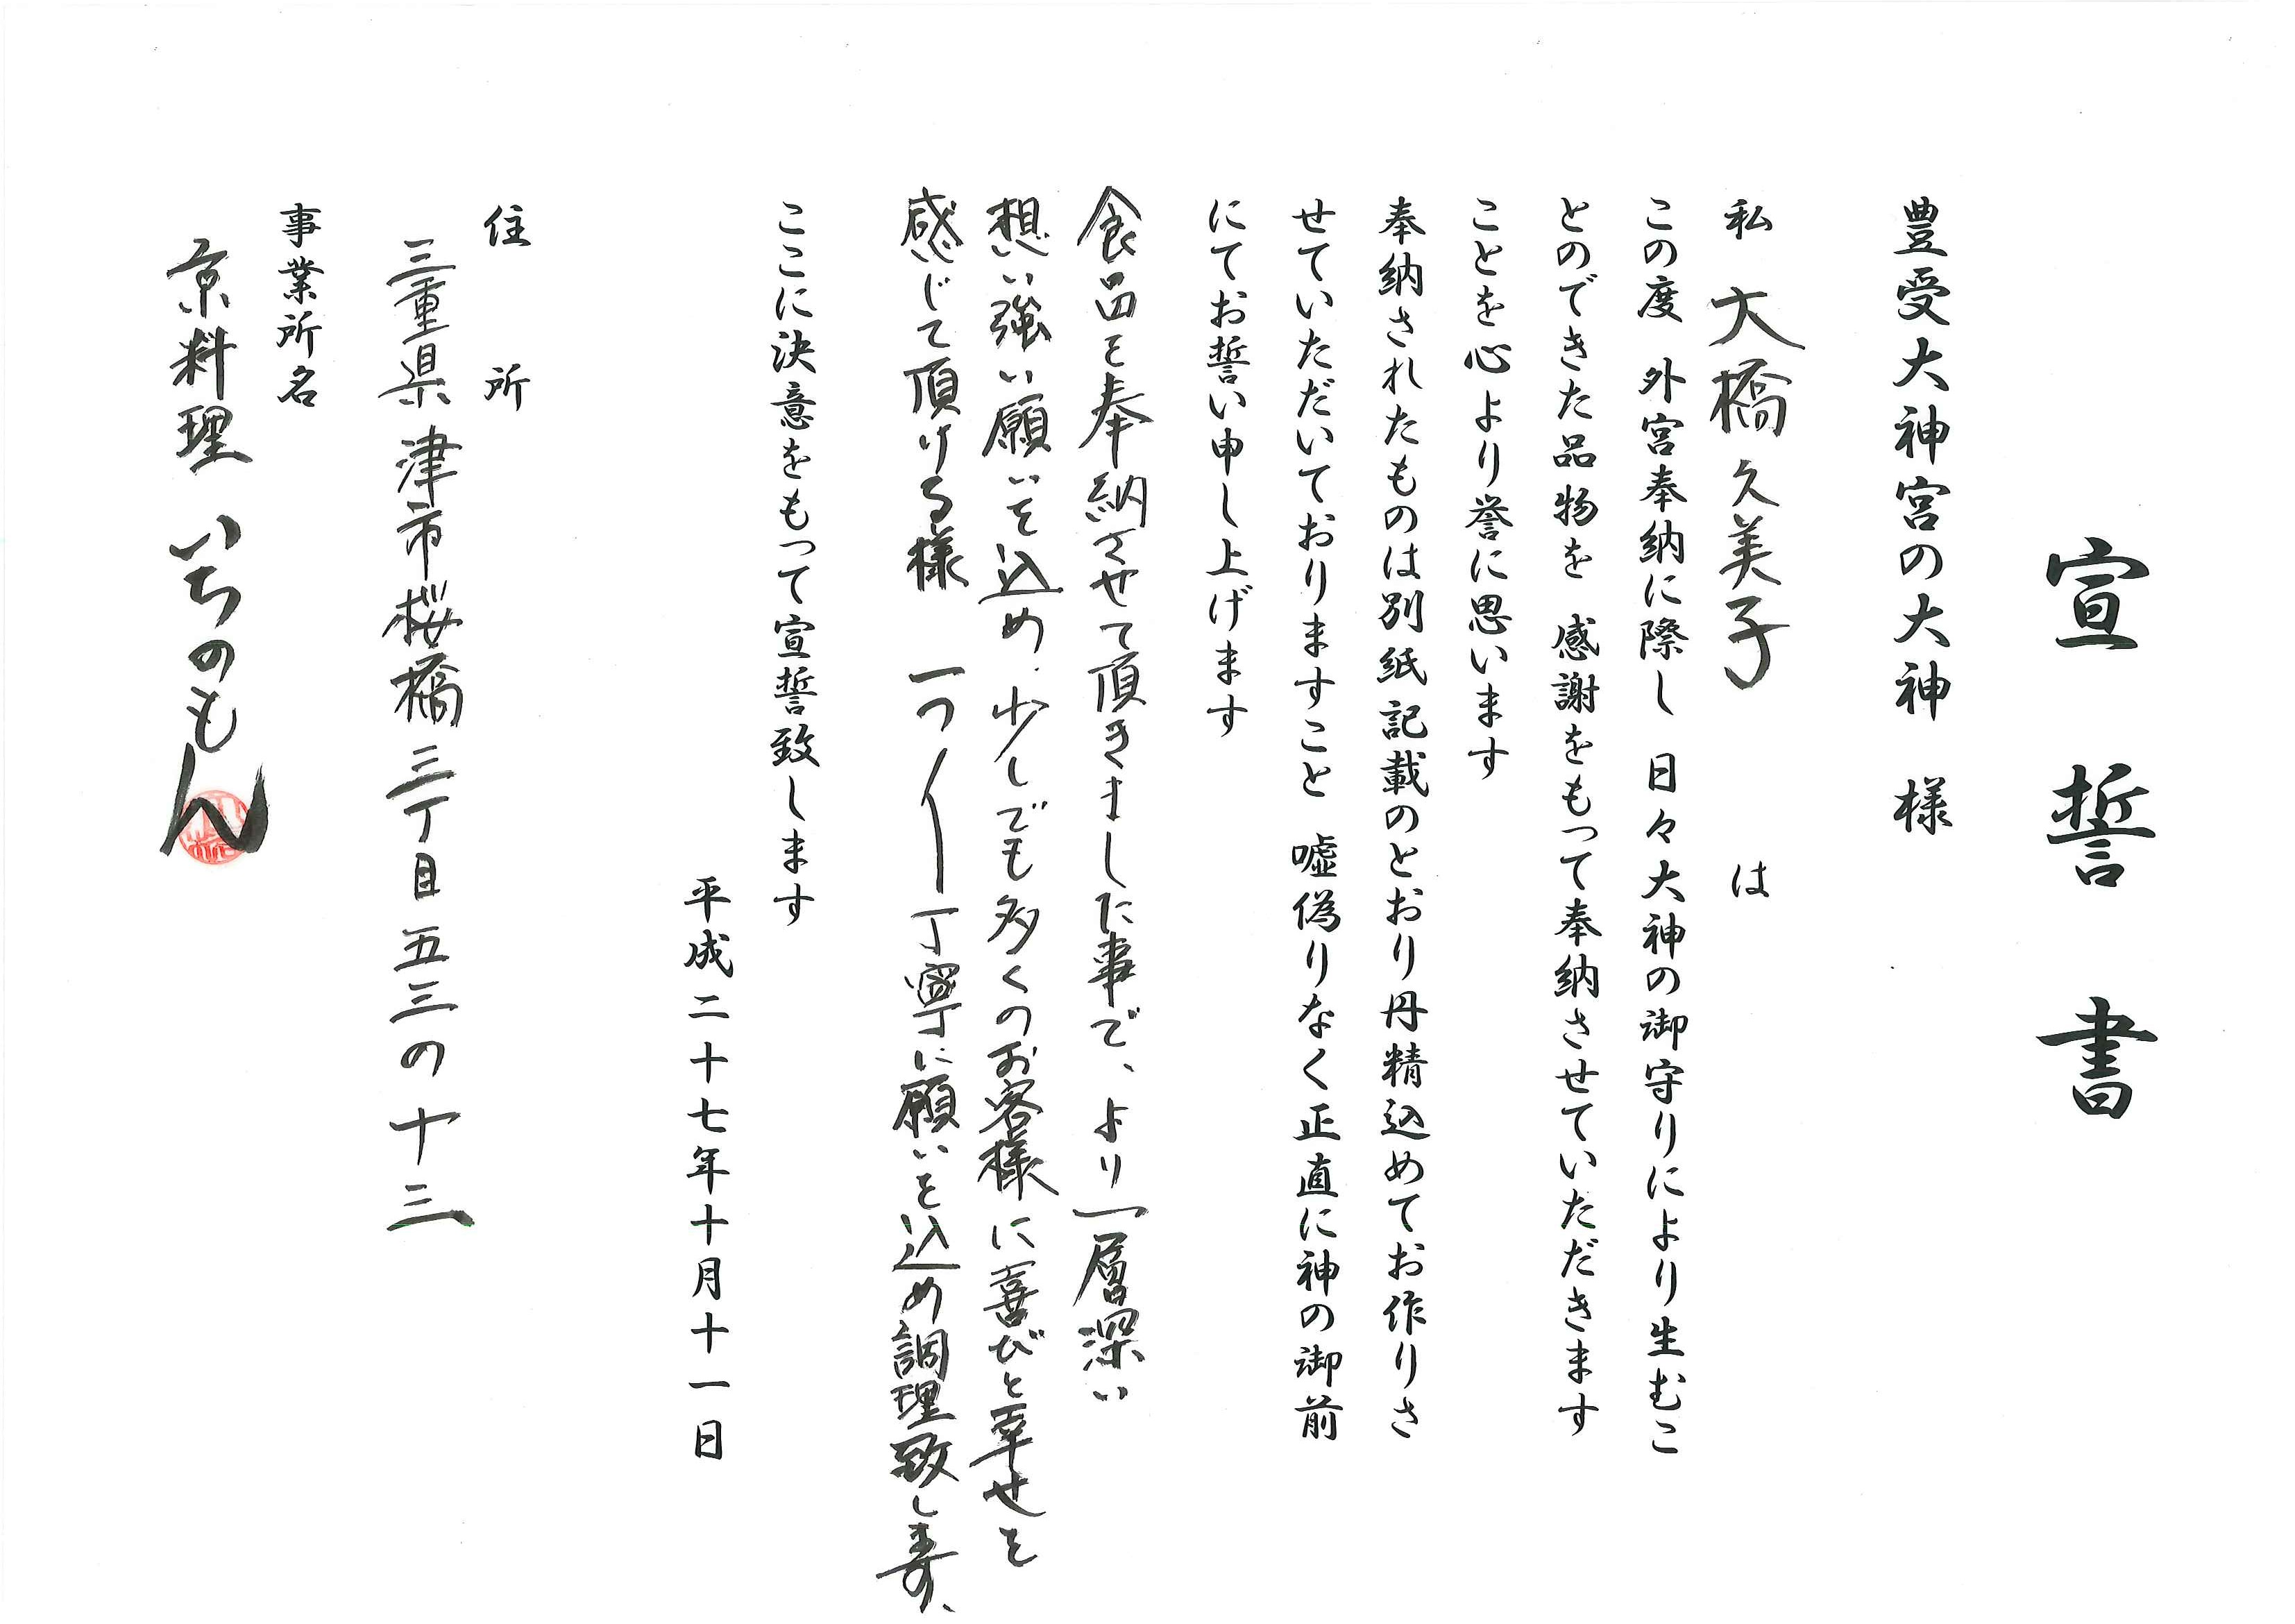 宣誓書
豊受大神宮の大神 様
私 大橋久美子 は
この度 外宮奉納に際し 日々大神の御守りにより生むこ
とのできた品物を 感謝をもって奉納させていただきます
ことを心より誉に思います
奉納されたものは別紙記載のとおり丹精込めてお作りさ
せていただいておりますこと 嘘偽りなく正直に神の御前
にてお誓い申し上げます
食品を奉納させて頂きました事で、より一層深い
想い強い願いを込め、少しでも多くのお客様に喜びと幸せを
感じて頂ける様 一つ〱丁寧に願いを込め調理致し寿、
ここに決意をもって宣誓致します
平成二十七年十月十一日
住所
三重県津市桜橋三丁目五三の十三
事業所名
京料理 いちのもん